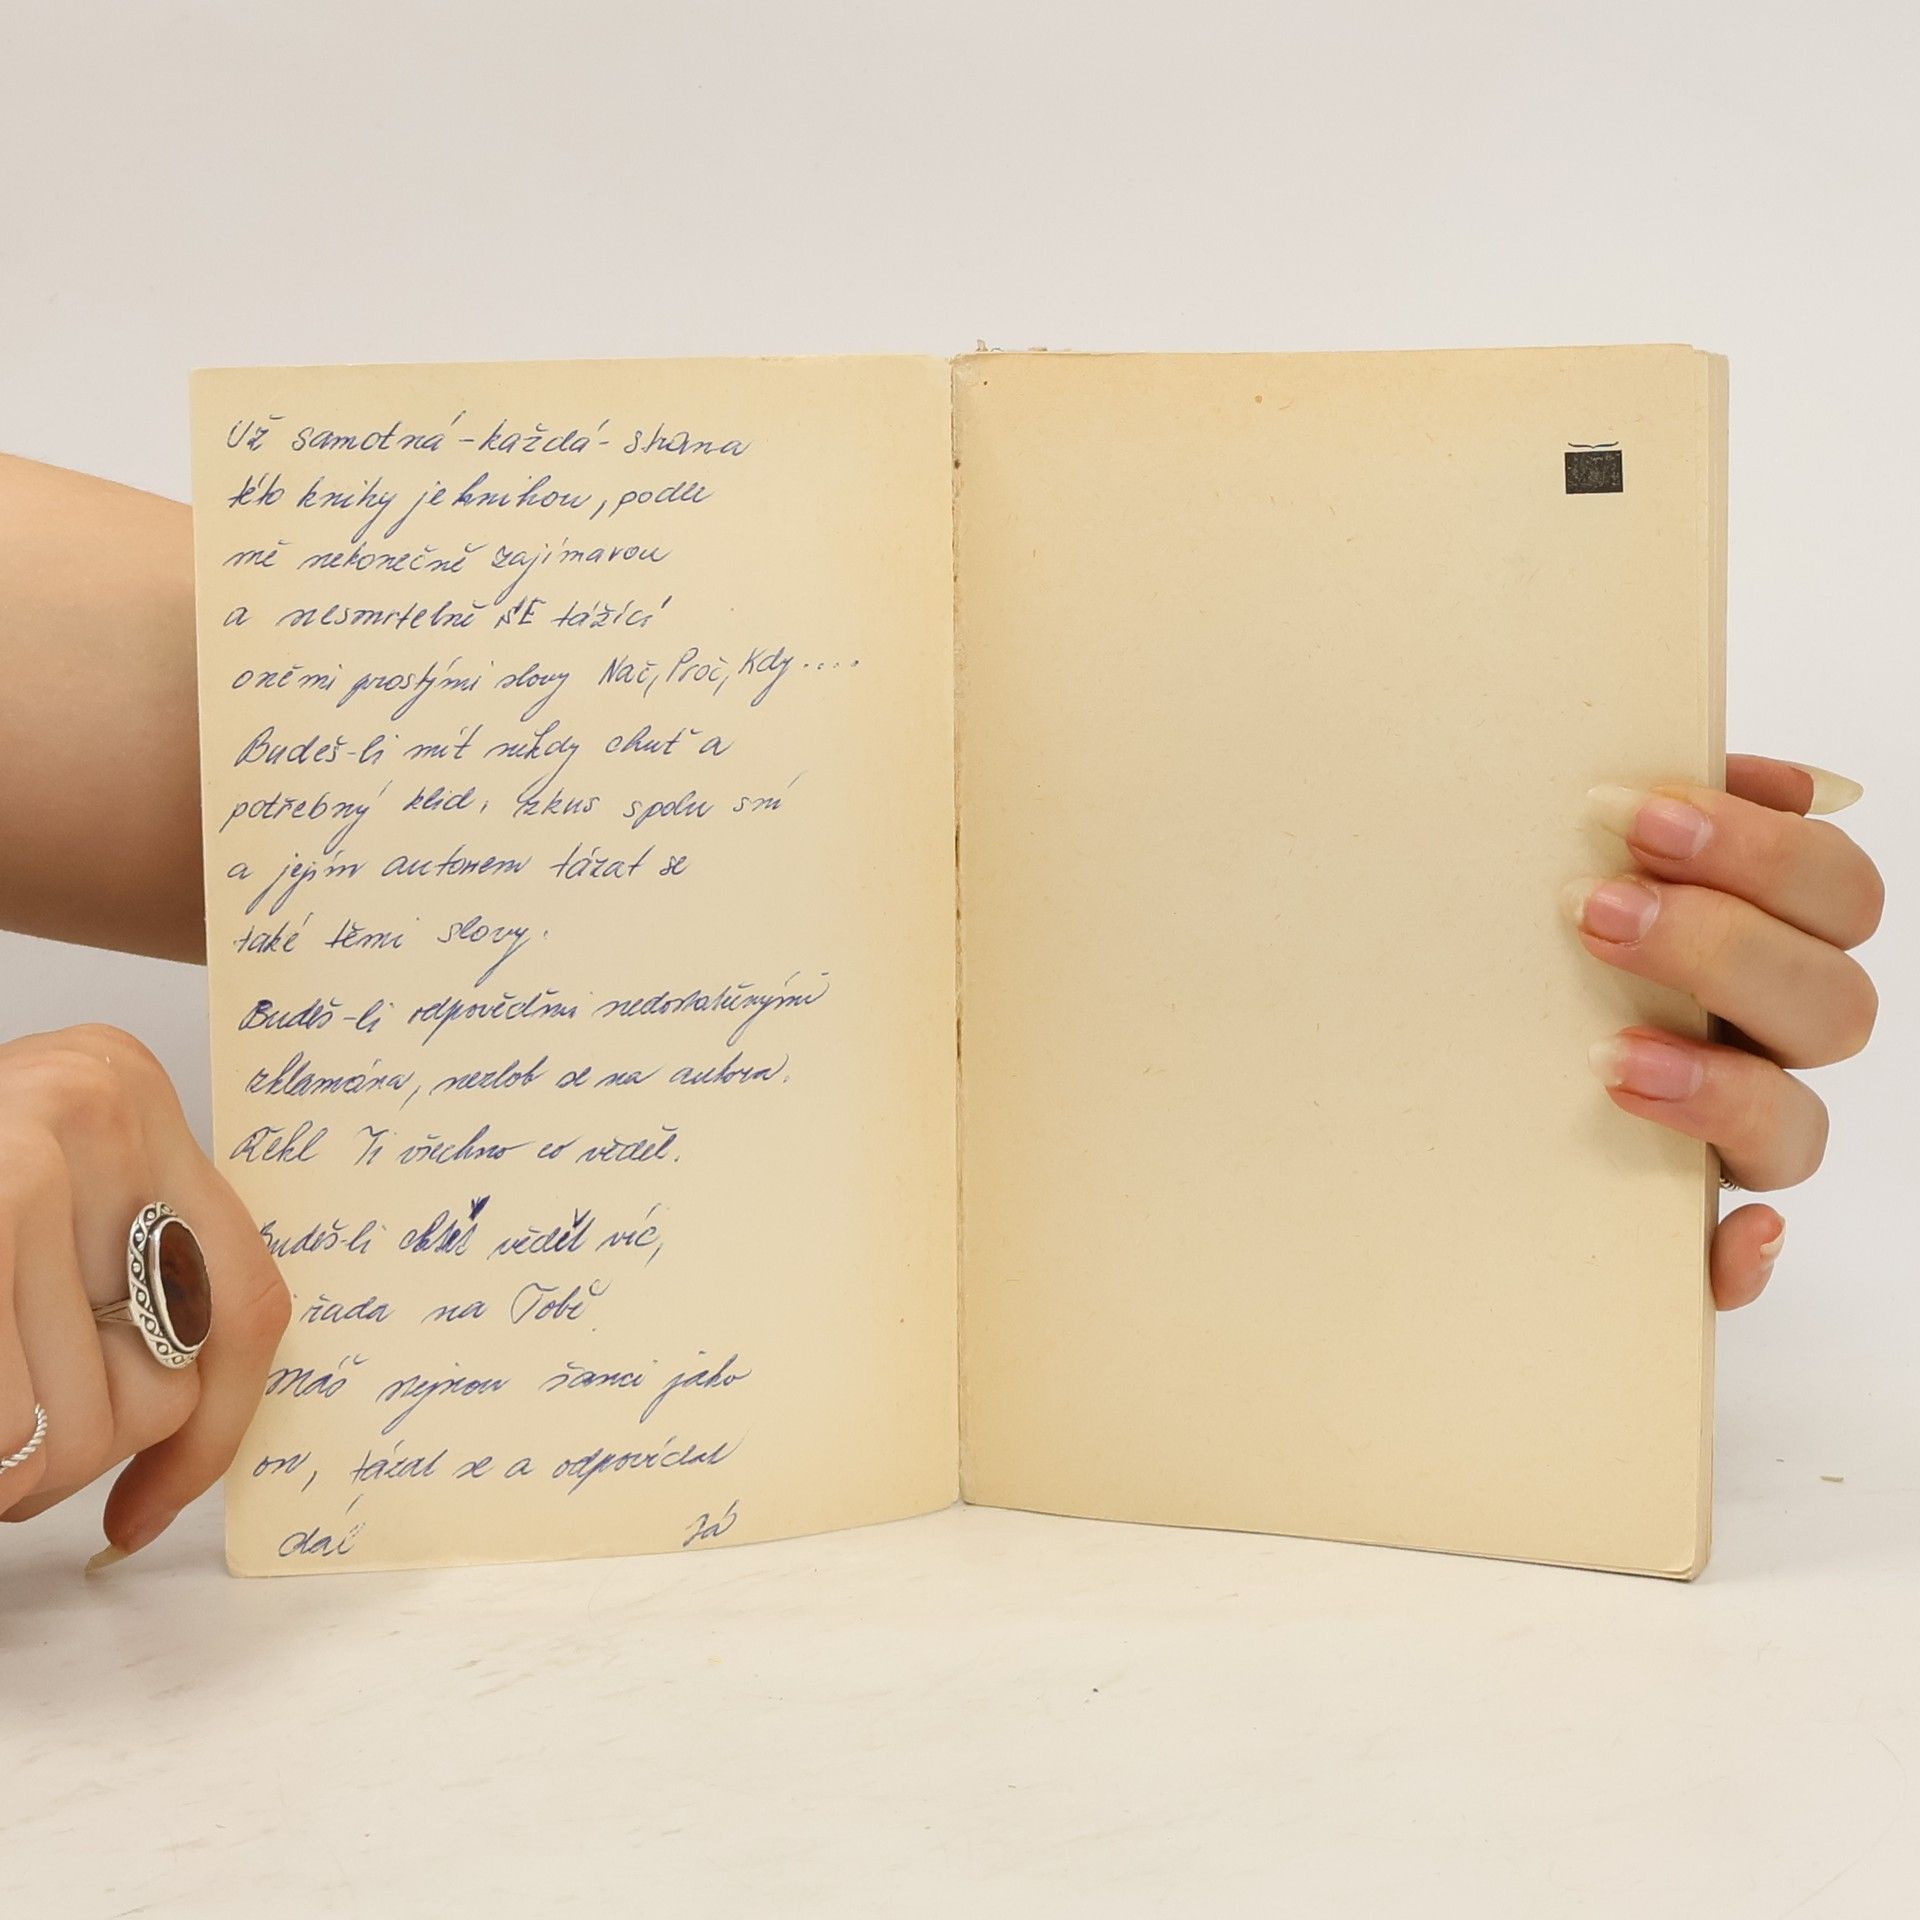 Už samotná - každá - strana
této knihy je knihou, podle
mě nekonečně zajímavou
a nesmrtelně SE tážící
oněmi prostými slovy Nač, Proč, Kdy....
Budeš-li mít někdy chuť a
potřebný klid, zkus spolu s ní
a jejím autorem tázat se
také těmi slovy.
Budeš-li odpověďmi nedostatečnými
zklamána, nezlob se na autora.
Řekl Ti všechno co věděl.
Budeš-li chtět vědět víc,
řada na Tobě
Máš stejnou šanci jako
on, tázat se a odpovídat
dál
Já